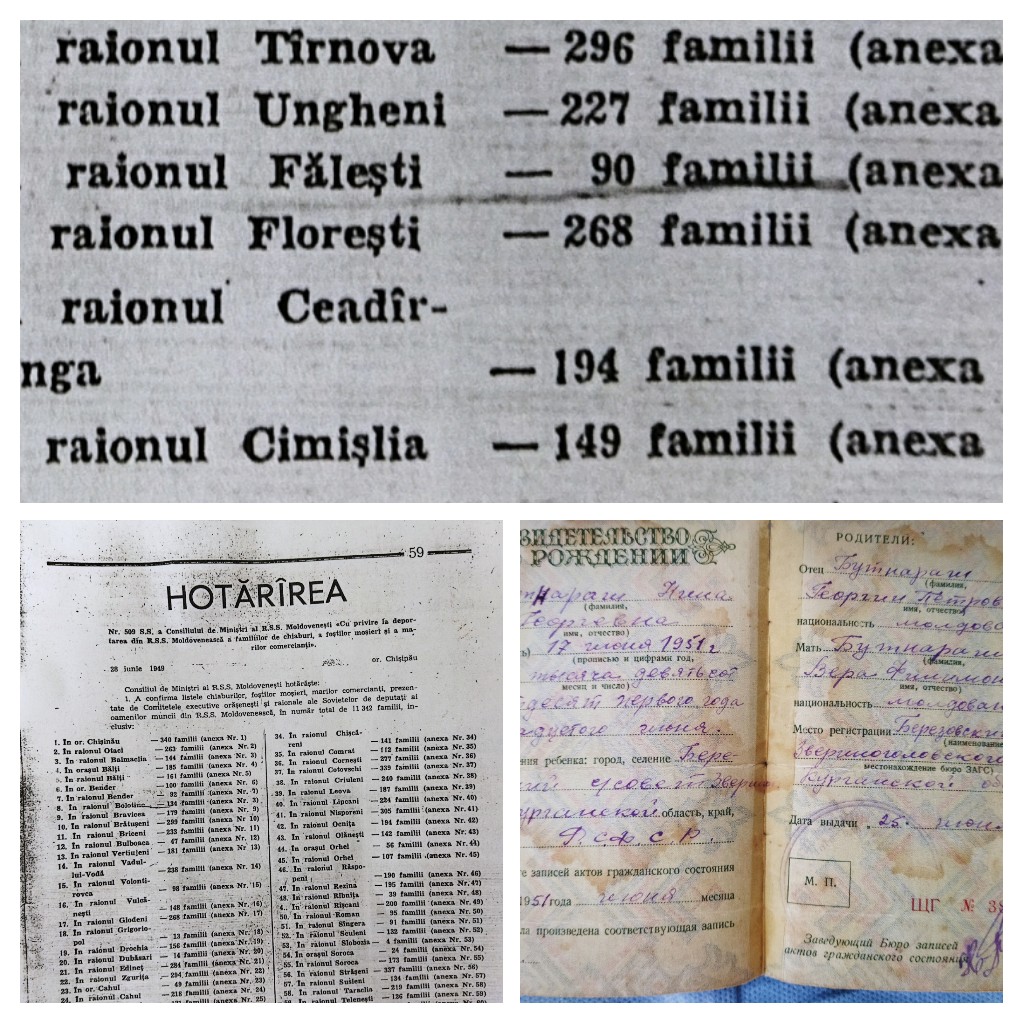 raionul Tîrnova — 296 familii (anexa
raionul Ungheni — 227 familii (anexa
raionul Fălești — 90 familii (anexa
raionul Florești — 268 familii (anexa
raionul Ceadîr-
nga — 194 familii (anexa
raionul Cimișlia — 149 familii (anexa
59
HOTĂRÎREA
Nr. 509 S.S, a Consiliului de Miniștri al R.S.S. Moldovenești «Cu privire la depor-
tarea din R.S.S. Moldovenească a familiilor de chiaburi, a foștilor moșieri și a ma-
rilor comercianți».
28 iunie 1949 or. Chișinău
Consiliul de Miniștri al R.S.S. Moldovenești hotărăște:
1. A confirma listele chiaburilor, foștilor moșieri, marilor comercianți, prezen-
tate de Comitetele executive orășenești și raionale ale Sovietelor de deputați al
oamenilor muncii din R.S.S. Moldovenească, în număr total de 11 342 familii, in-
clusiv:
1. În or. Chișinău — 340 familii (anexa Nr. 1)
2. În raionul Otaci — 263 familii (anexa Nr. 2)
3. În raionul Baimaclia — 144 familii (anexa Nr. 3)
4. În orașul Bălți — 185 familii (anexa Nr. 4)
5. În raionul Bălți — 161 familii (anexa Nr. 5)
6. În or. Bender — 100 familii (anexa Nr. 6)
7. În raionul Bender — 92 familii (anexa Nr. 7)
8. În raionul Bolotino — 134 familii (anexa Nr. 8)
9. În raionul Bravicea — 179 familii (anexa Nr. 9)
10. În raionul Brătușeni — 299 familii (anexa Nr. 10)
11. În raionul Briceni — 233 familii (anexa Nr. 11)
12. În raionul Bulboaca — 47 familii (anexa Nr. 12)
13. În raionul Vertiujeni — 181 familii (anexa Nr. 13)
14. În raionul Vadul-
lui-Vodă — 238 familii (anexa Nr. 14)
15. În raionul Volonti-
rovca — 98 familii (anexa Nr. 15)
16. În raionul Vulcă-
nești — 148 familii (anexa Nr. 16)
17. În raionul Glodeni — 268 familii (anexa Nr. 17)
18. În raionul Grigorio-
pol — 13 familii (anexa Nr. 18)
19. În raionul Drochia — 156 familii (anexa Nr. 19)
20. În raionul Dubăsari — 14 familii (anexa Nr. 20)
21. În raionul Edineț — 284 familii (anexa Nr. 21)
22. În raionul Zgurița — 294 familii (anexa Nr. 22)
23. În or. Cahul — 49 familii (anexa Nr. 23)
24. În raionul Cahul — 218 familii (anexa Nr. 24)
34. În raionul Chișcă-
reni — 141 familii (anexa Nr. 34)
35. În raionul Comrat — 112 familii (anexa Nr. 35)
36. În raionul Cornești — 277 familii (anexa Nr. 36)
37. În raionul Cotovschi — 339 familii (anexa Nr. 37)
38. În raionul Criuleni — 240 familii (anexa Nr. 38)
39. În raionul Leova — 187 familii (anexa Nr. 39)
40. În raionul Lipcani — 224 familii (anexa Nr. 40)
41. În raionul Nisporeni — 305 familii (anexa Nr. 41)
42. În raionul Ocnița — 194 familii (anexa Nr. 42)
43. În raionul Olănești — 142 familii (anexa Nr. 43)
44. În orașul Orhei — 56 familii (anexa Nr. 44)
45. În raionul Orhei — 107 familii (anexa Nr. 45)
46. În raionul Răspo-
peni — 190 familii (anexa Nr. 46)
47. În raionul Rezina — 195 familii (anexa Nr. 47)
48. În raionul Rîbnița — 39 familii (anexa Nr. 48)
49. În raionul Rîșcani — 200 familii (anexa Nr. 49)
50. În raionul Roman — 95 familii (anexa Nr. 50)
51. În raionul Sîngera — 91 familii (anexa Nr. 51)
52. În raionul Sculeni — 132 familii (anexa Nr. 52)
53. În raionul Slobozia — 4 familii (anexa Nr. 53)
54. În orașul Soroca — 24 familii (anexa Nr. 54)
55. În raionul Soroca — 173 familii (anexa Nr. 55)
56. În raionul Strășeni — 337 familii (anexa Nr. 56)
57. În raionul Susleni — 134 familii (anexa Nr. 57)
58. În raionul Taraclia — 219 familii (anexa Nr. 58)
În raionul Telenești — 126 familii (anexa Nr. 59)
ВИДЕТЕЛЬСТВО
РОЖДЕНИИ
Нина
(фамилия,
Георгевна
имя, отчество)
17 июня 1951 г
(прописью и цифрами год,
тысяча девятьсот
месяц и число)
десят первого года
июня.
ния ребенка: город, селение Бере
с/совет Зверин
урганской область, край,
Р.С.Ф.С.Р.
е записей актов гражданского состояния
1951 года июня месяца
ла произведена соответствующая запись
РОДИТЕЛИ:
Отец Бутнараш
(фамилия,
Георгий Петров
имя, отчество)
национальность молдова
Мать Бутнараш
(фамилия,
Вера Филимон
имя, отчество)
национальность молдован
Место регистрации Березовского
(наименование
Звериноголовского
местонахождение бюро ЗАГС)
Курганской об
Дата выдачи „25. июн
М. П.
ЩГ № 38
Заведующий Бюро записей
актов гражданского состояния